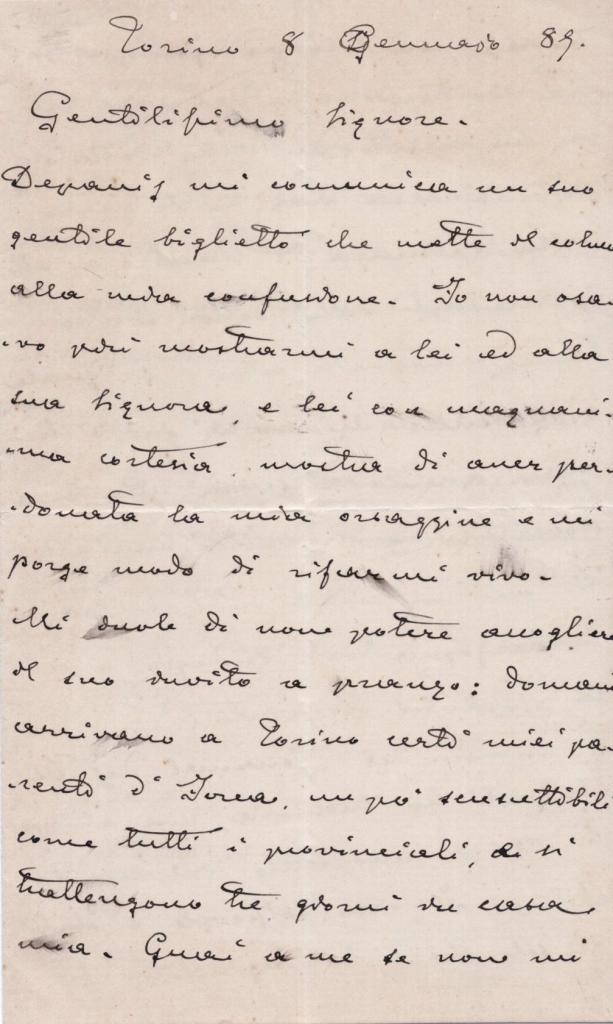 Torino 8 Gennaio 89.
Gentilissimo Signore.
Depanis mi comunica un suo
gentile biglietto che mette il colmo
alla mia confusione. Io non osa-
-vo più mostrarmi a lei ed alla
sua Signora, e lei, con magnani-
-ma cortesia, mostra di aver per-
-donata la mia orsaggine e mi
porge modo di rifarmi vivo.
Mi duole di non potere accogliere
il suo invito a pranzo: domani
arrivano a Torino certi miei pa-
-renti d'Ivrea, un po' suscettibili
come tutti i provinciali, e si
trattengono tre giorni in casa
mia. Guai a me se non mi